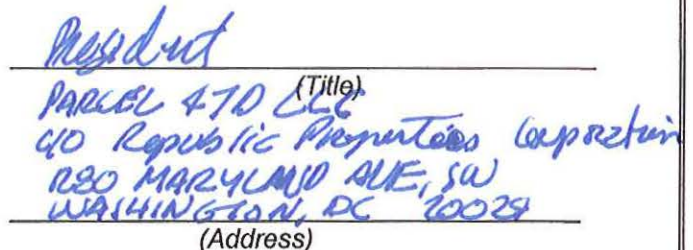 President
(Title)
PARCEL 47D LLC
c/o Republic Properties Corporation
1280 MARYLAND AVE, SW
WASHINGTON, DC 20024
(Address)